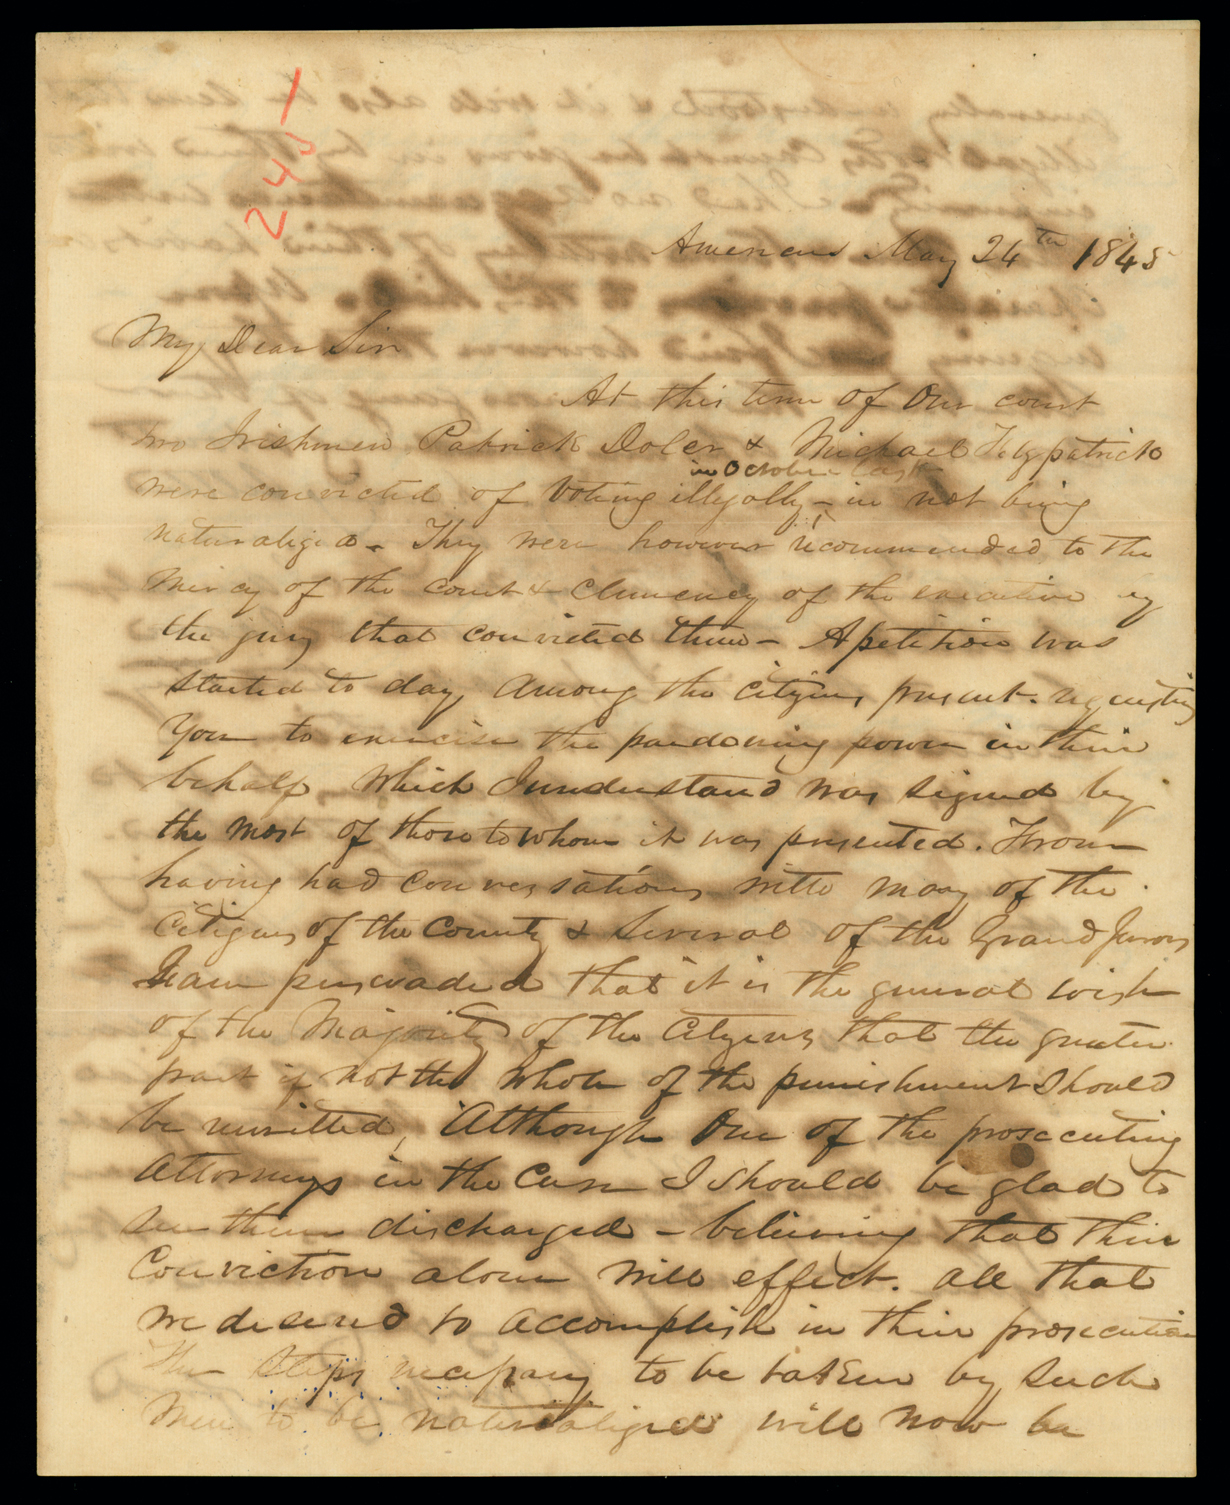 2451
Americus May 24th 1845
My Dear Sir
At this term of Our court
two Irishmen Patrick Doler & Michael Fitzpatrick
in October last
were convicted of Voting illegally – in not being
naturalized – They were however recommended to the
mercy of the court & Clemency of the executive by
the jury that convicted them – A petition was
started to day, among the citizens present. requesting
You to exercise the pardoning power in their
behalf, which I understand was signed by
the most of those to whom it was presented. From
having had conversations with many of the
Citizens of the County & Several of the Grand Jurors
I am perswaded that it is the general wish
of the Majority of the Citizens that the greater
part if not the whole of the punishment should
be remitted, Although One of the prosecuting
Attorneys in the Case I should be glad to
see them discharged – believing that their
Conviction alone will effect. all that
we desired to accomplish in their prosecution
The steps necessary to be taken by such
men to be naturalized will now be